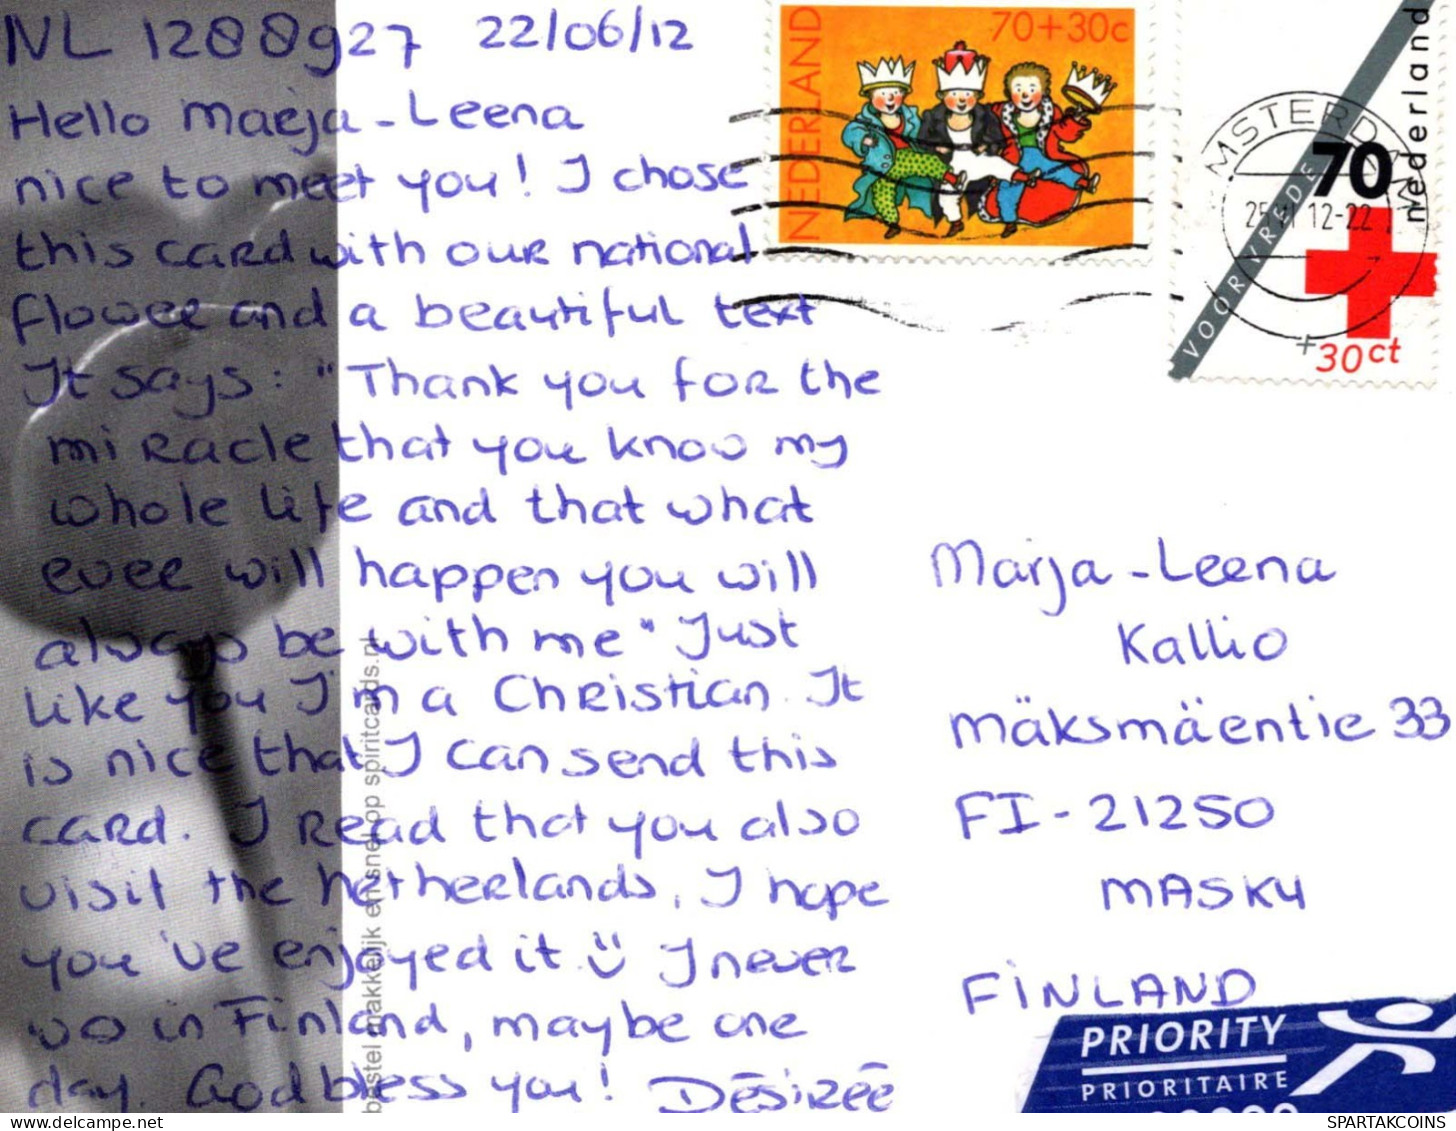 NL 1288927 22/06/12
Hello Marja-Leena
nice to meet you! I chose
this card with our national
flower and a beautiful text
It says: "Thank you for the
miracle that you know my
whole life and that what
ever will happen you will
always be with me" Just
like you I'm a Christian. It
is nice that I can send this
card. I read that you also
visit the Netherlands, I hope
you've enjoyed it. I never
wo in Finland, maybe one
day. God bless you! Désirée
bestel makkelijk en snel op spiritcards.nl
NEDERLAND
70+30c
nederland
70
VOOR VREDE
+30ct
AMSTERDAM
12-22
Marja-Leena
Kallio
Mäksmäentie 33
FI-21250
MASKU
FINLAND
PRIORITY
PRIORITAIRE
SPARTAKCOINS